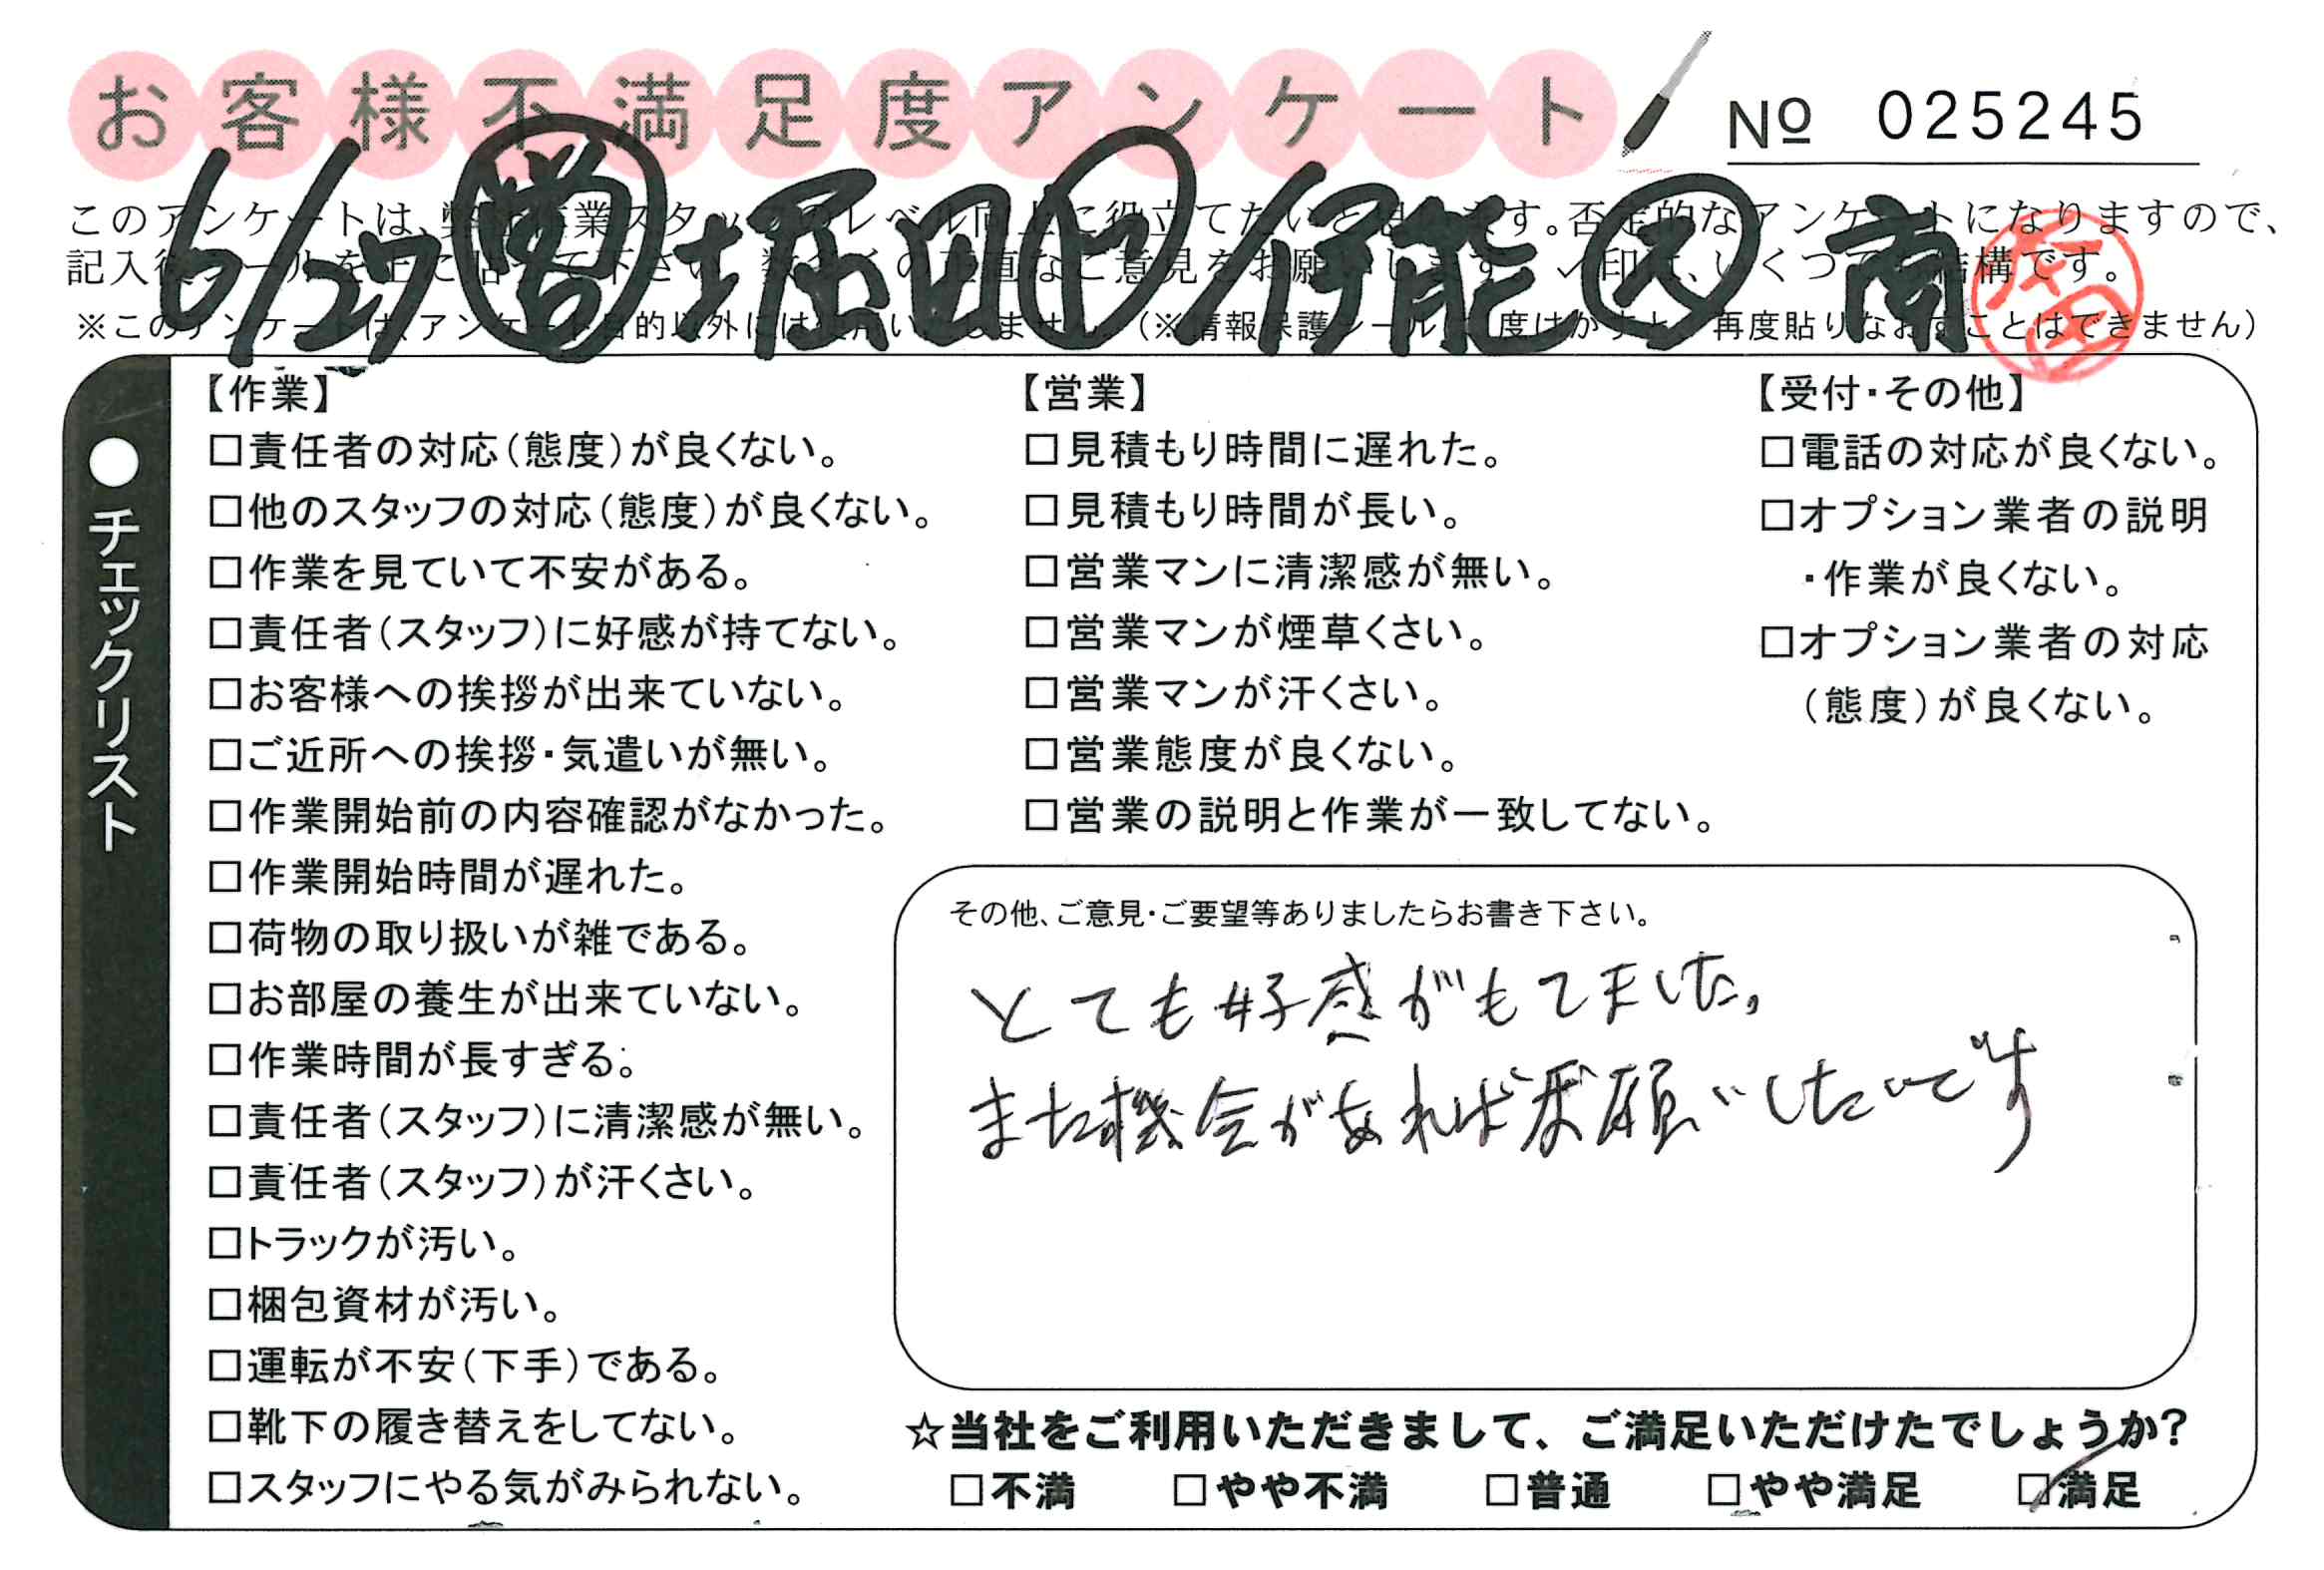 お客様不満足度アンケート
№ 025245
6/27 営 堀田 伊能 ス 南
このアンケートは、
※このアンケートは、アンケート目的以外には 再度貼りなおすことはできません）
チェックリスト
【作業】
□責任者の対応（態度）が良くない。
□他のスタッフの対応（態度）が良くない。
□作業を見ていて不安がある。
□責任者（スタッフ）に好感が持てない。
□お客様への挨拶が出来ていない。
□ご近所への挨拶・気遣いが無い。
□作業開始前の内容確認がなかった。
□作業開始時間が遅れた。
□荷物の取り扱いが雑である。
□お部屋の養生が出来ていない。
□作業時間が長すぎる。
□責任者（スタッフ）に清潔感が無い。
□責任者（スタッフ）が汗くさい。
□トラックが汚い。
□梱包資材が汚い。
□運転が不安（下手）である。
□靴下の履き替えをしてない。
□スタッフにやる気がみられない。
【営業】
□見積もり時間に遅れた。
□見積もり時間が長い。
□営業マンに清潔感が無い。
□営業マンが煙草くさい。
□営業マンが汗くさい。
□営業態度が良くない。
□営業の説明と作業が一致してない。
【受付・その他】
□電話の対応が良くない。
□オプション業者の説明
・作業が良くない。
□オプション業者の対応
（態度）が良くない。
その他、ご意見・ご要望等ありましたらお書き下さい。
とても好感がもてました。
また機会があればお願いしたいです
☆当社をご利用いただきまして、ご満足いただけたでしょうか？
□不満 □やや不満 □普通 □やや満足 ☑満足